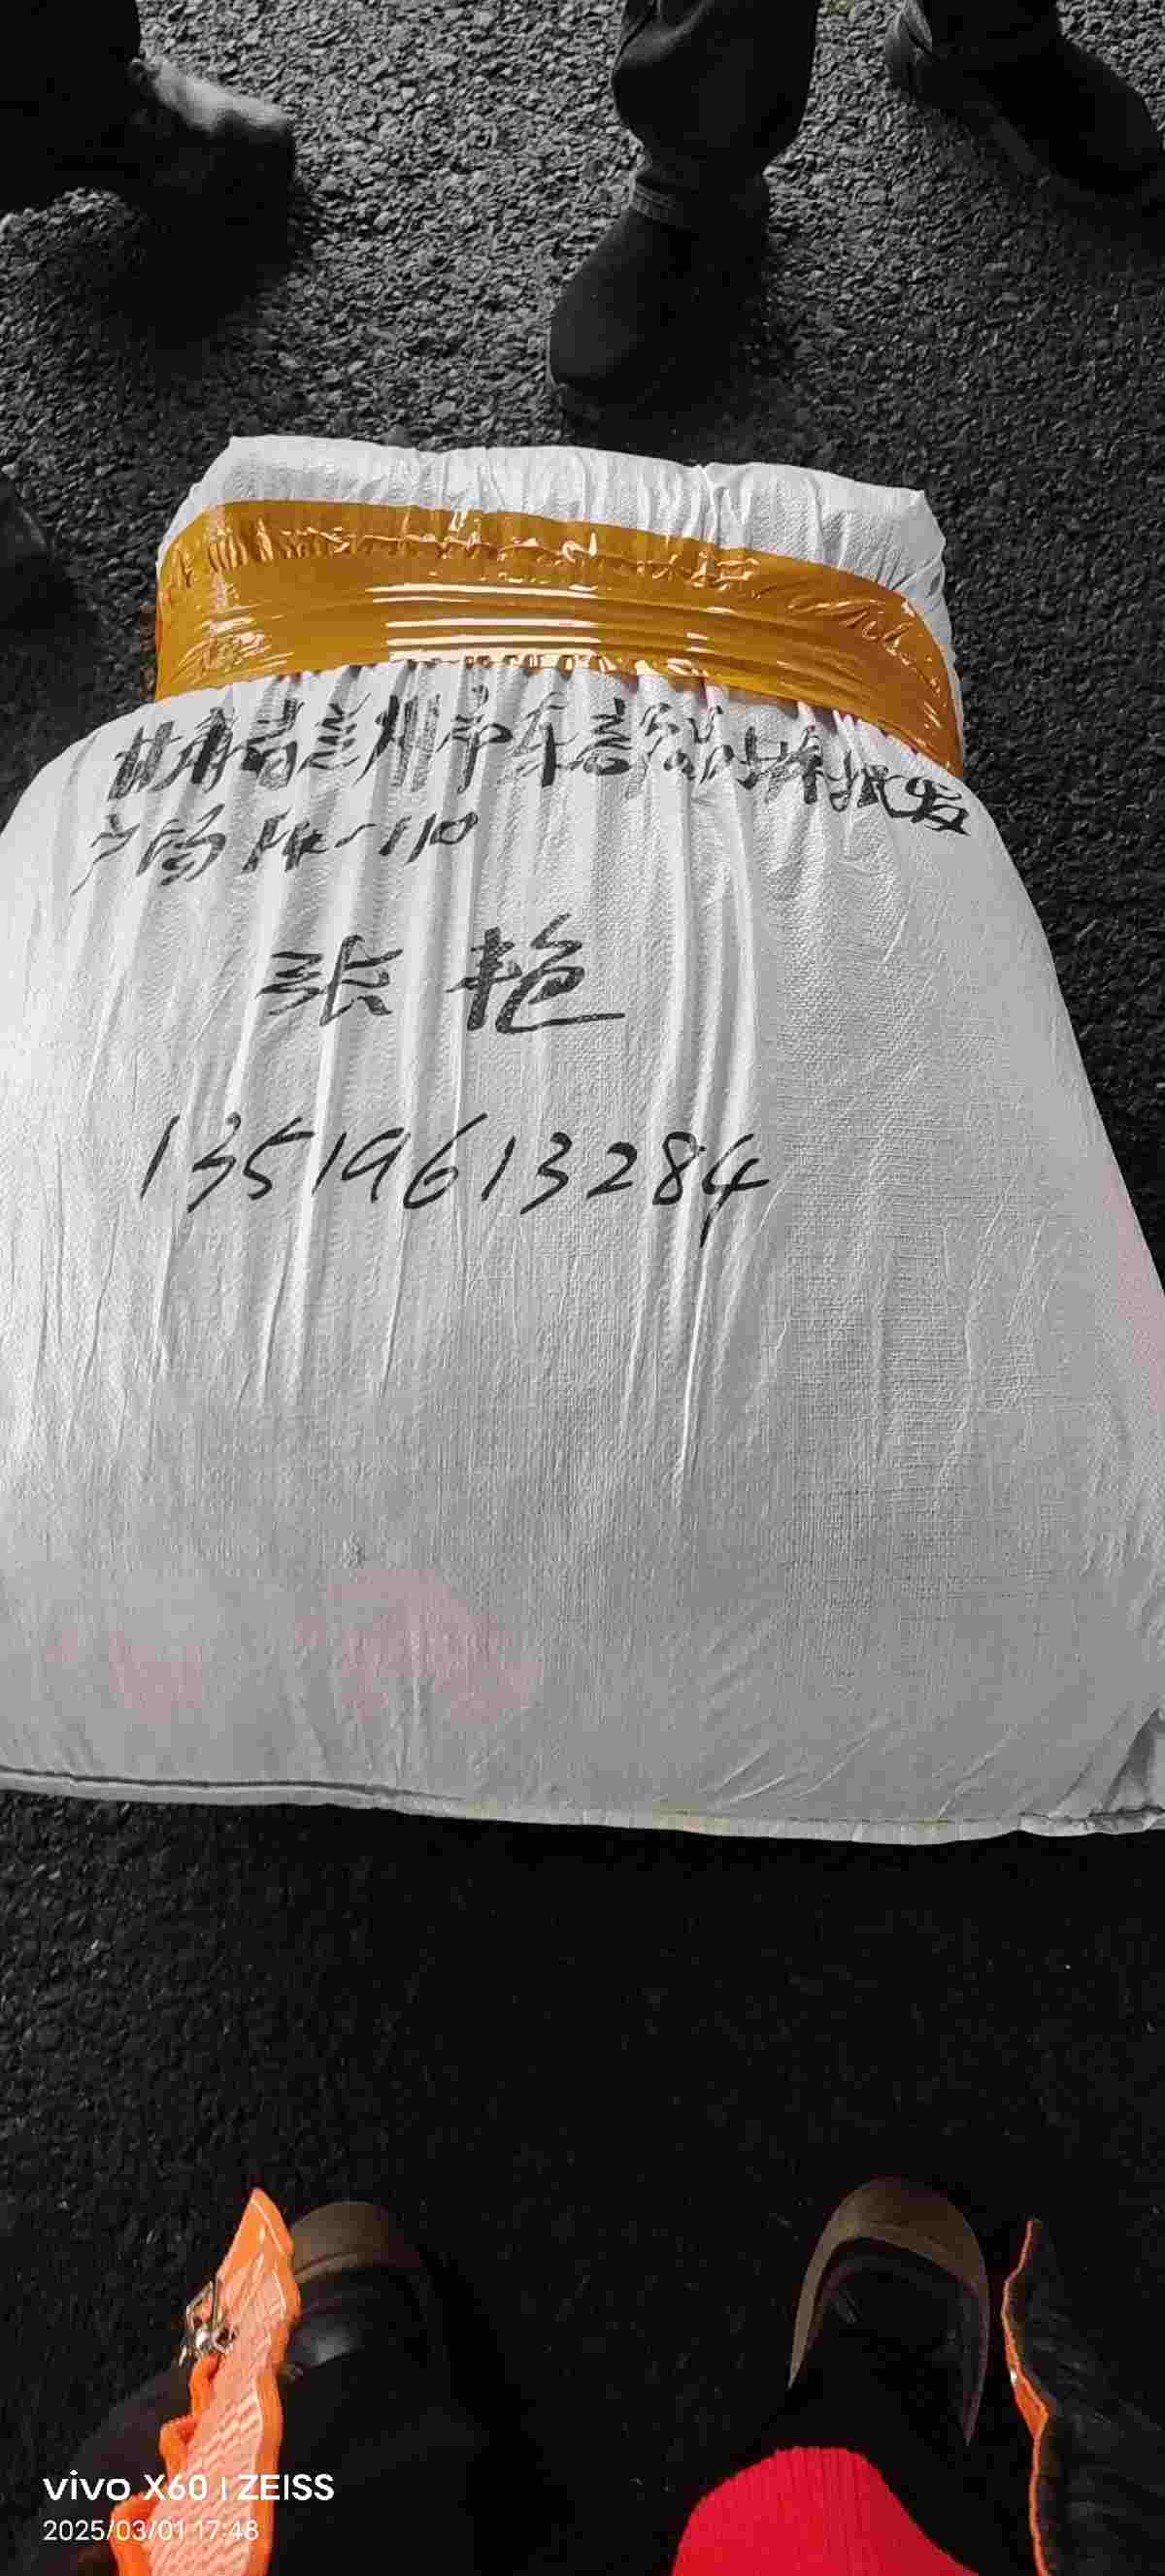 甘肃省兰州市东部
批发
广场 附-110
张艳
13519613284
vivo X60 | ZEISS
2025/03/01 17:48